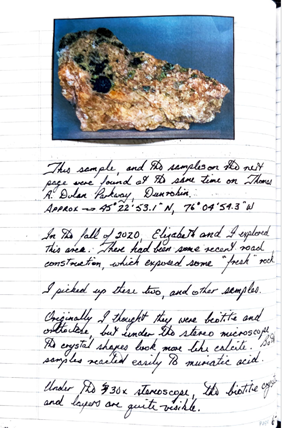 This sample, and the samples on the next
page were found at the same time on Thomas
A. Dolan Parkway, Dunrobin.
Approx → 45° 22' 53.1" N, 76° 04' 54.3" W
In the fall of 2020, Elizabeth and I explored
this area. There had been some recent road
construction, which exposed some "fresh" rock.
I picked up these two, and other samples.
Originally I thought they were biotite and
orthoclase, but under the stereo microscope
the crystal shapes look more like calcite. Both
samples reacted easily to muriatic acid.
Under the 30x stereoscope, the biotite crystals
and layers are quite visible.